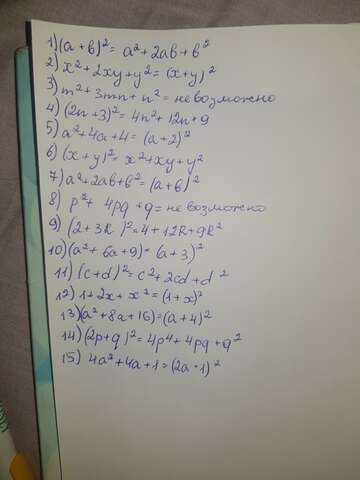 1) (a + b)² = a² + 2ab + b²
2) x² + 2xy + y² = (x+y)²
3) m² + 3mn + n² = невозможено
4) (2n + 3)² = 4n² + 12n + 9
5) a² + 4a + 4 = (a + 2)²
6) (x + y)² = x² + xy + y²
7) a² + 2ab + b² = (a + b)²
8) p² + 4pq + q = невозможено
9) (2 + 3k)² = 4 + 12k + 9k²
10) (a² + 6a + 9) = (a + 3)²
11) (c + d)² = c² + 2cd + d²
12) 1 + 2x + x² = (1 + x)²
13) (a² + 8a + 16) = (a + 4)²
14) (2p + q)² = 4p⁴ + 4pq + q²
15) 4a² + 4a + 1 = (2a · 1)²